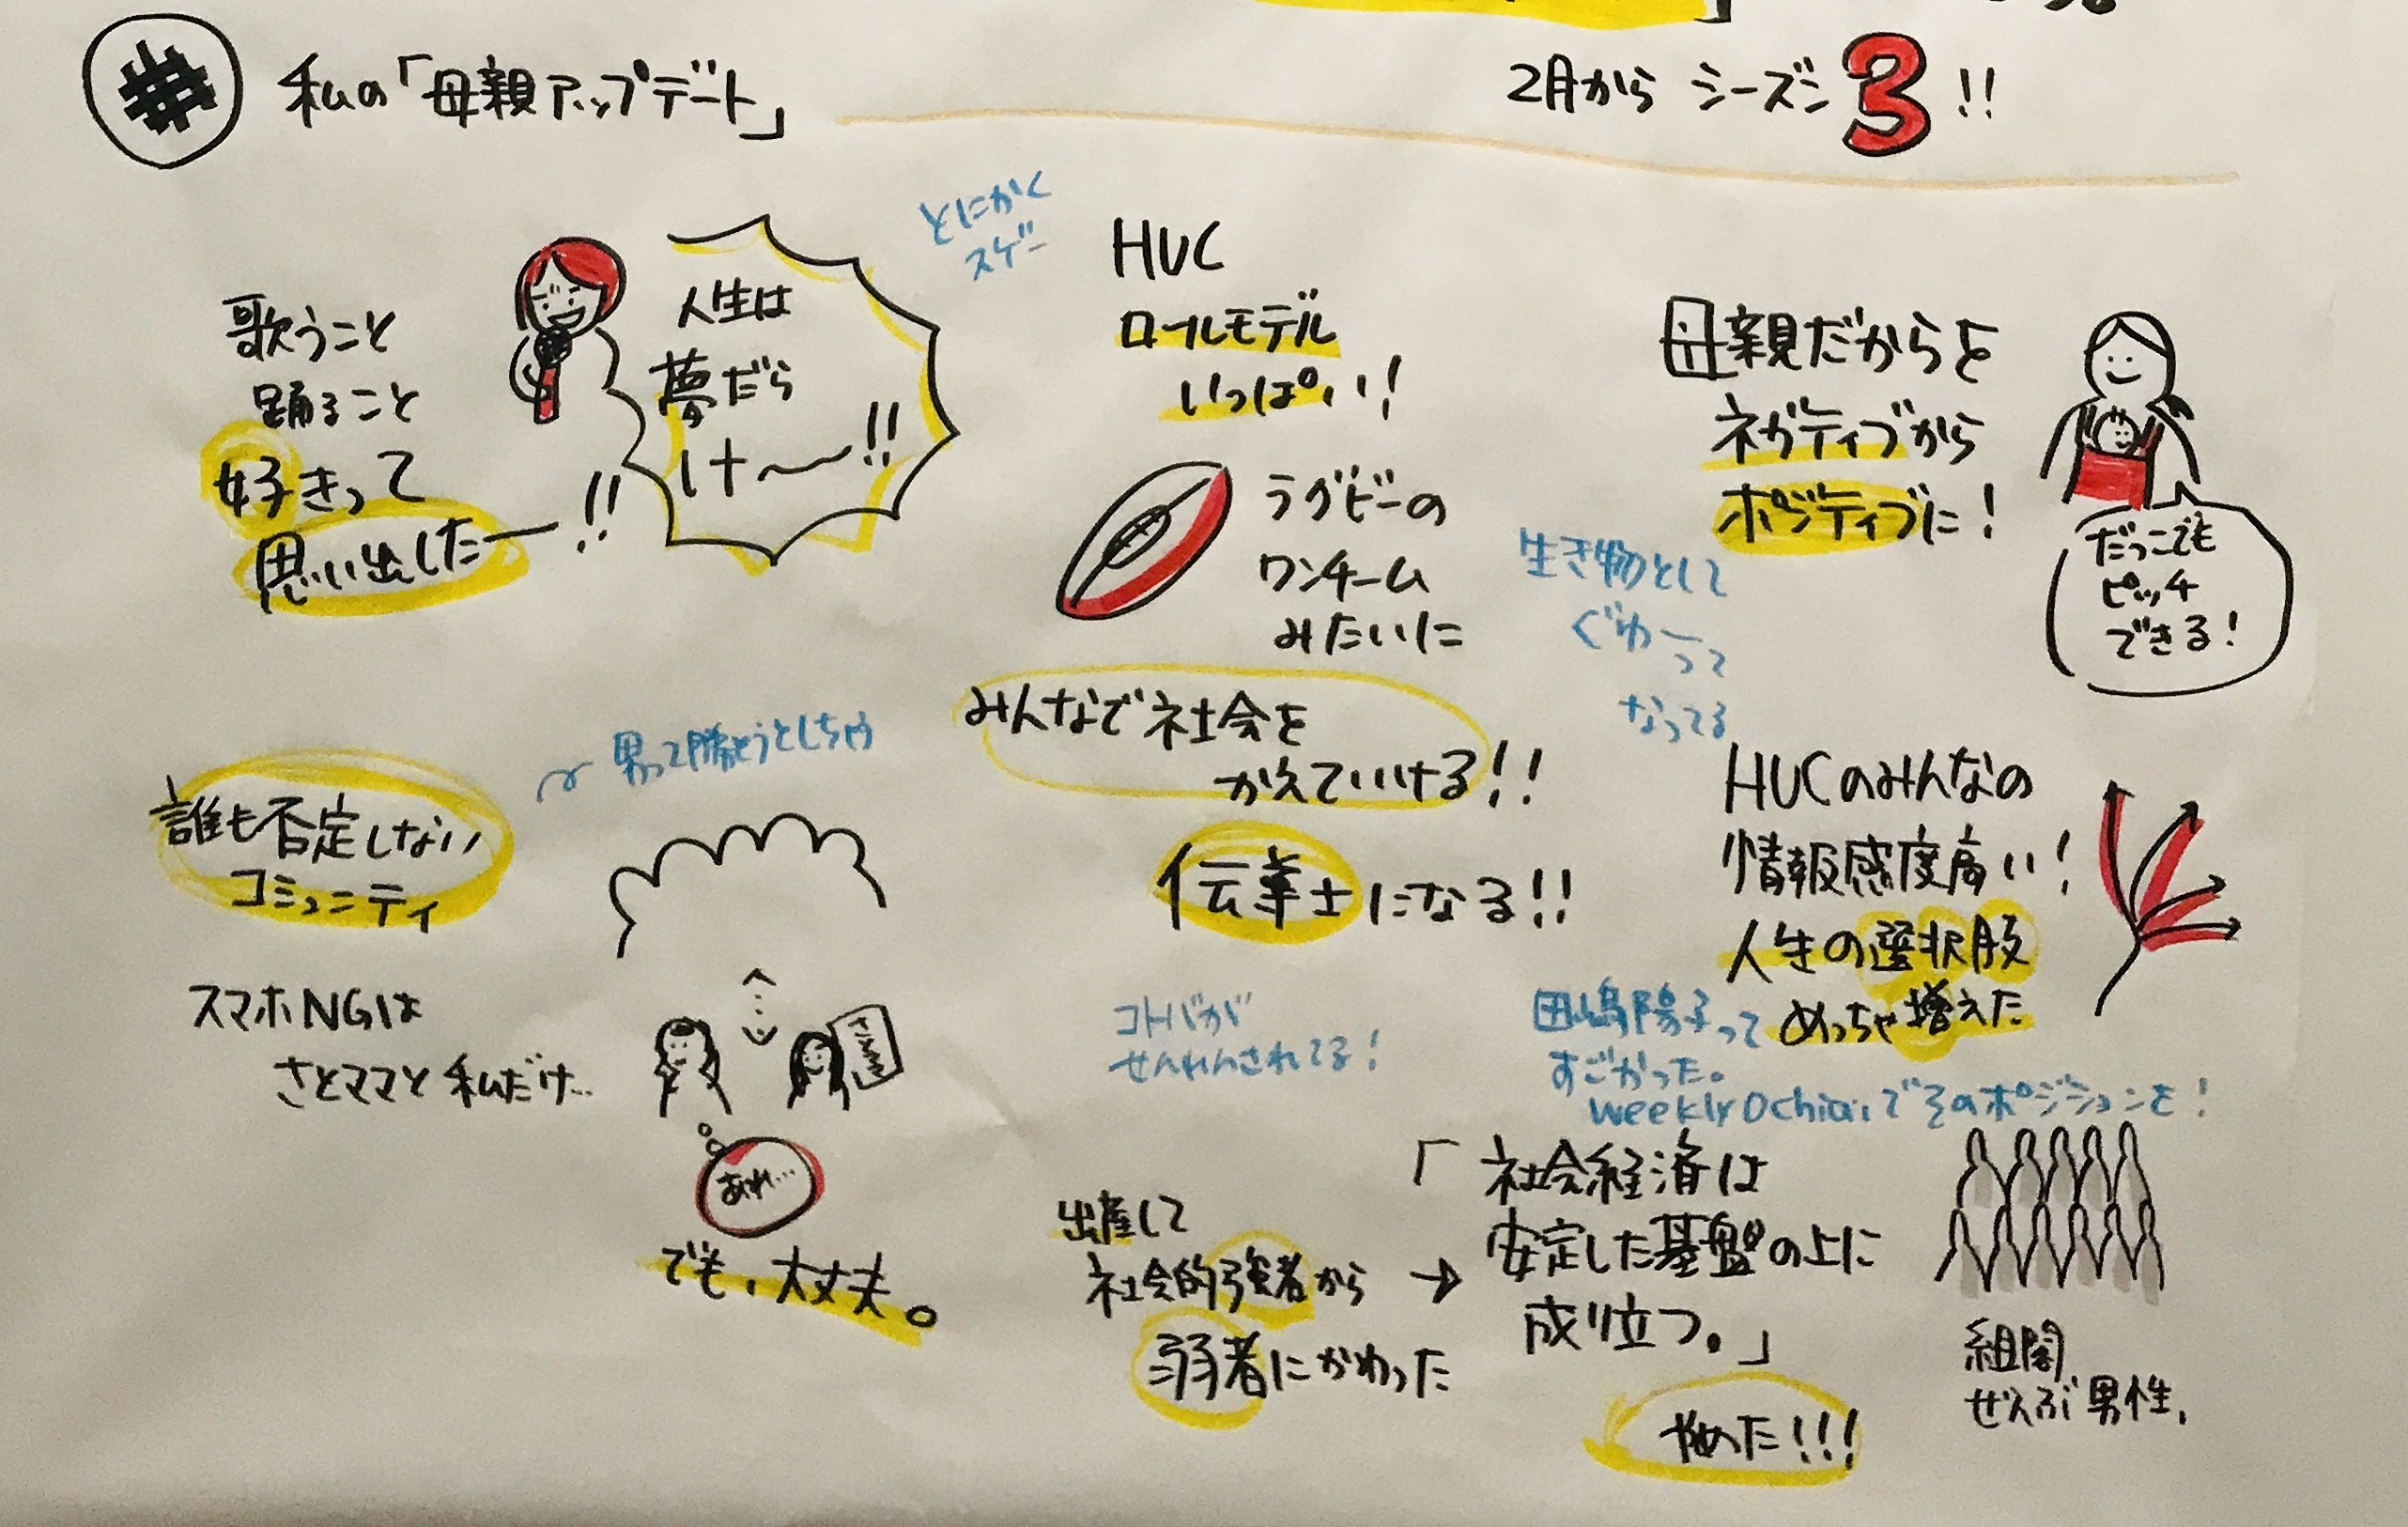 # 私の「母親アップデート」
2月から シーズン3!!
歌うこと
踊ること
好きって
思い出したー!!
人生は
夢だら
けー!!
とにかく
スゲー
HUC
ロールモデル
いっぱい!
ラグビーの
ワンチーム
みたいに
みんなで社会を
かえていける!!
伝革士になる!!
コトバが
せんれんされてる!
母親だからを
ネガティブから
ポジティブに!
だっこでも
ピッチ
できる!
生き物として
ぐわーって
なってる
HUCのみんなの
情報感度高い!
人生の選択肢
めっちゃ増えた
田嶋陽子って
すごかった。
weekly Ochiaiでそのポジションを!
誰も否定しない
コミュニティ
男って勝とうとしちゃう
スマホNGは
さとママと私だけ…
あれ…
でも、大丈夫。
出産して
社会的強者から
弱者にかわった
→
「社会経済は
安定した基盤の上に
成り立つ。」
やめた!!!
組閣
ぜんぶ男性、